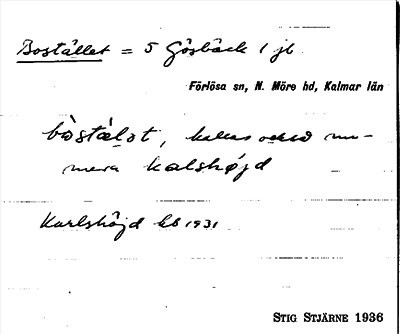 Bostället = 5 Gösbäck 1 jb
Förlösa sn, N. Möre hd, Kalmar län
bòstälət, kallas också nu-
mera kalshöjd
Karlshöjd kb 1931
STIG STJÄRNE 1936